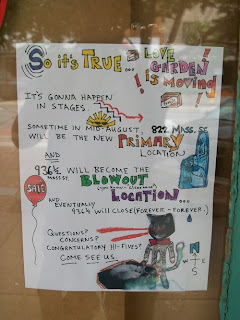 So it's TRUE...
LOVE
GARDEN
is MOVING!
IT'S GONNA HAPPEN
IN STAGES.
SOMETIME IN MID-AUGUST, 822 MASS. ST.
WILL BE THE NEW PRIMARY
LOCATION
AND
936½ WILL BECOME THE
MASS. ST.
BLOWOUT
LOCATION...
SALE
AND
EVENTUALLY
936½ WILL CLOSE (FOREVER-FOREVER.)
QUESTIONS?
CONCERNS?
CONGRATULATORY HI-FIVES?
COME SEE US.
N
W
E
S